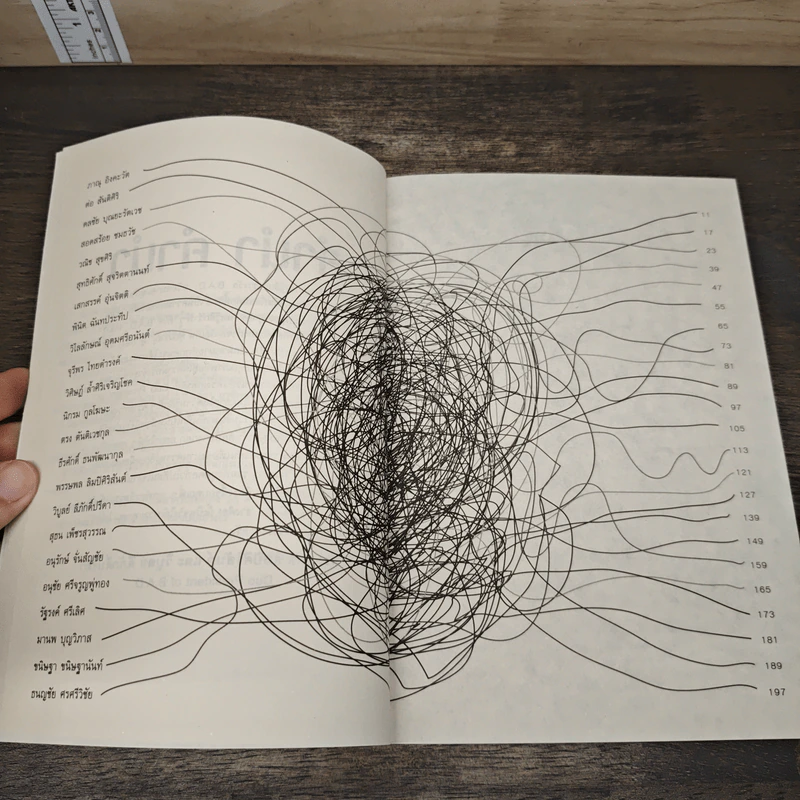 ภาณุ อิงคะวัต
ต่อ สันติศิริ
ดลชัย บุณยะรัตเวช
สอดสร้อย ชมธวัช
วณิช สุขศิริ
สุทธิศักดิ์ สุจริตตานนท์
เสกสรรค์ อุ่นจิตติ
พินิต ฉันทประทีป
วิไลลักษณ์ อุดมศรีอนันต์
จุรีพร ไทยดำรงค์
วิศิษฎ์ ล้ำศิริเจริญโชค
นิกรม กูลโฆษะ
ตรง ตันติเวชกุล
ธีรศักดิ์ ธนพัฒนากุล
พรรษพล ลิมปิศิริสันต์
วิบูลย์ ลีภักดิ์ปรีดา
สุธน เพ็ชรสุวรรณ
อนุรักษ์ จั่นสัญชัย
อนุชัย ศรีจรูญพู่ทอง
รัฐรงค์ ศรีเลิศ
มานพ บุญวิภาส
ชนิษฐา ชนิษฐานันท์
ธนญชัย ศรศรีวิชัย
11
17
23
39
47
55
65
73
81
89
97
105
113
121
127
139
149
159
165
173
181
189
197